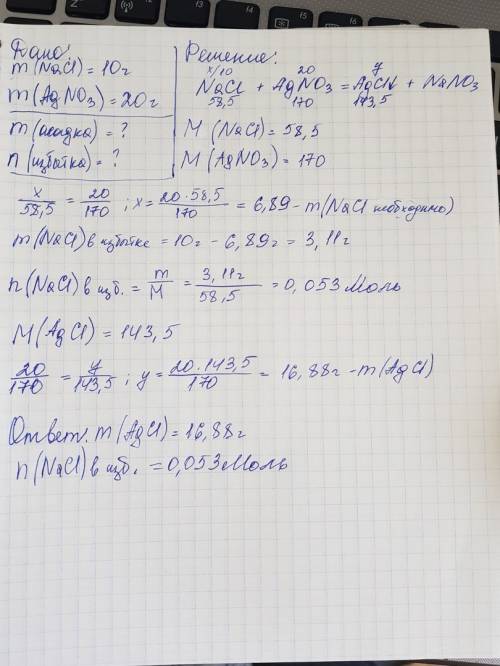 Дано:
m(NaCl) = 10г
m(AgNO3) = 20г
m(осадка) = ?
n(избытка) = ?
Решение:
x/10 20 y
NaCl + AgNO3 = AgCl↓ + NaNO3
58,5 170 143,5
M(NaCl) = 58,5
M(AgNO3) = 170
x/58,5 = 20/170 ; x = 20·58,5/170 = 6,89 - m(NaCl необходимо)
m(NaCl) в избытке = 10г - 6,89г = 3,11г
n(NaCl) в изб. = m/M = 3,11г/58,5 = 0,053 Моль
M(AgCl) = 143,5
20/170 = y/143,5 ; y = 20·143,5/170 = 16,88г - m(AgCl)
Ответ: m(AgCl) = 16,88г
n(NaCl) в изб. = 0,053 Моль